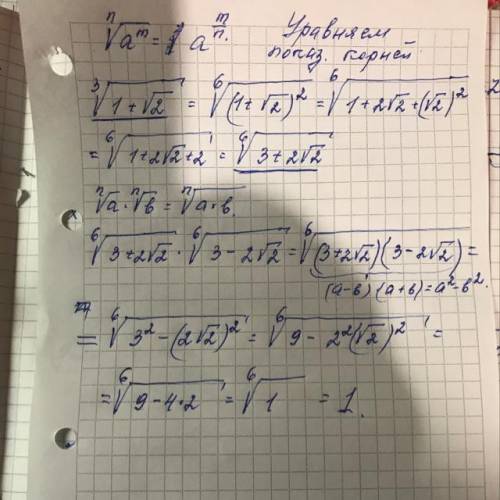 ⁿ√(aᵐ) = a^(m/n). Уравняем
показ. корней
³√(1+√2) = ⁶√((1+√2)²) = ⁶√(1+2√2+(√2)²)
= ⁶√(1+2√2+2) = ⁶√(3+2√2)
ⁿ√a · ⁿ√b = ⁿ√(a·b).
⁶√(3+2√2) · ⁶√(3-2√2) = ⁶√((3+2√2)(3-2√2)) =
(a-b)(a+b)=a²-b².
= ⁶√(3²-(2√2)²) = ⁶√(9-2²(√2)²) =
= ⁶√(9-4·2) = ⁶√1 = 1.